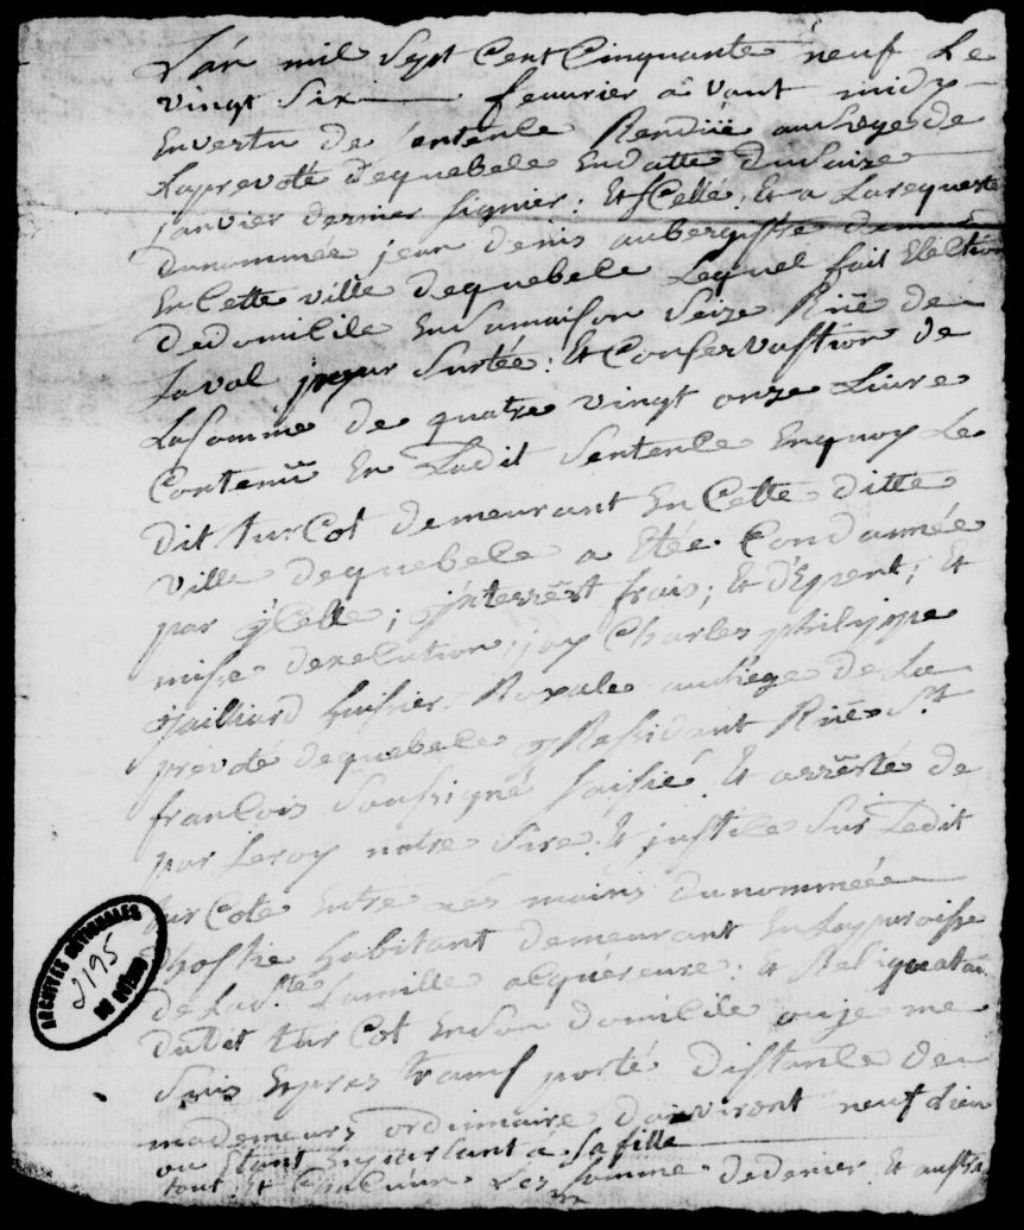 L'an mil Sept Cent Cinquante neuf Le
vingt Six feuurier avant midy
En vertu de Sentence Rendüe au Siege de
Laprevoté dequebele En datte du Saize
janvier dernier Signier: Et Scellé; Et a Larequeste
dunommée jean denis aubergiste
En Cette ville dequebele Lequel fait Election
dedomicile En Samaison Seize Rüe de
Laval pour Surtée: Et Conservastion de
LaSomme de quatre vingt onze Livre
Contenü En Ladit Sentence Enquoy Le
dit turcot demeurant En Cette ditte
ville dequebele a Etée Condamnée
par yCelle; jnterrest frais; Et d'Epent; Et
mise dexecution; jay Charles philippe
Gailliard huissier Royale au Siege de La
prevoté dequebele Residant Rüe St
francois Soussigné Saisie Et arresté de
par Leroy notre Sire Et justice Sur Ledit
turCote Entre Les mains dunommée
habitant demeurant En La paroisse
de famille acquéreure: Et
Dudit turCot En Son domicile ou je me
Suis Expres transporté distance de
mademeure ordinaire d'aiviront neuf
ou Etant En parlant à Sa fille
tout Et Les Somme dedenier Et
ARCHIVES NATIONALES
2195
DU QUÉBEC